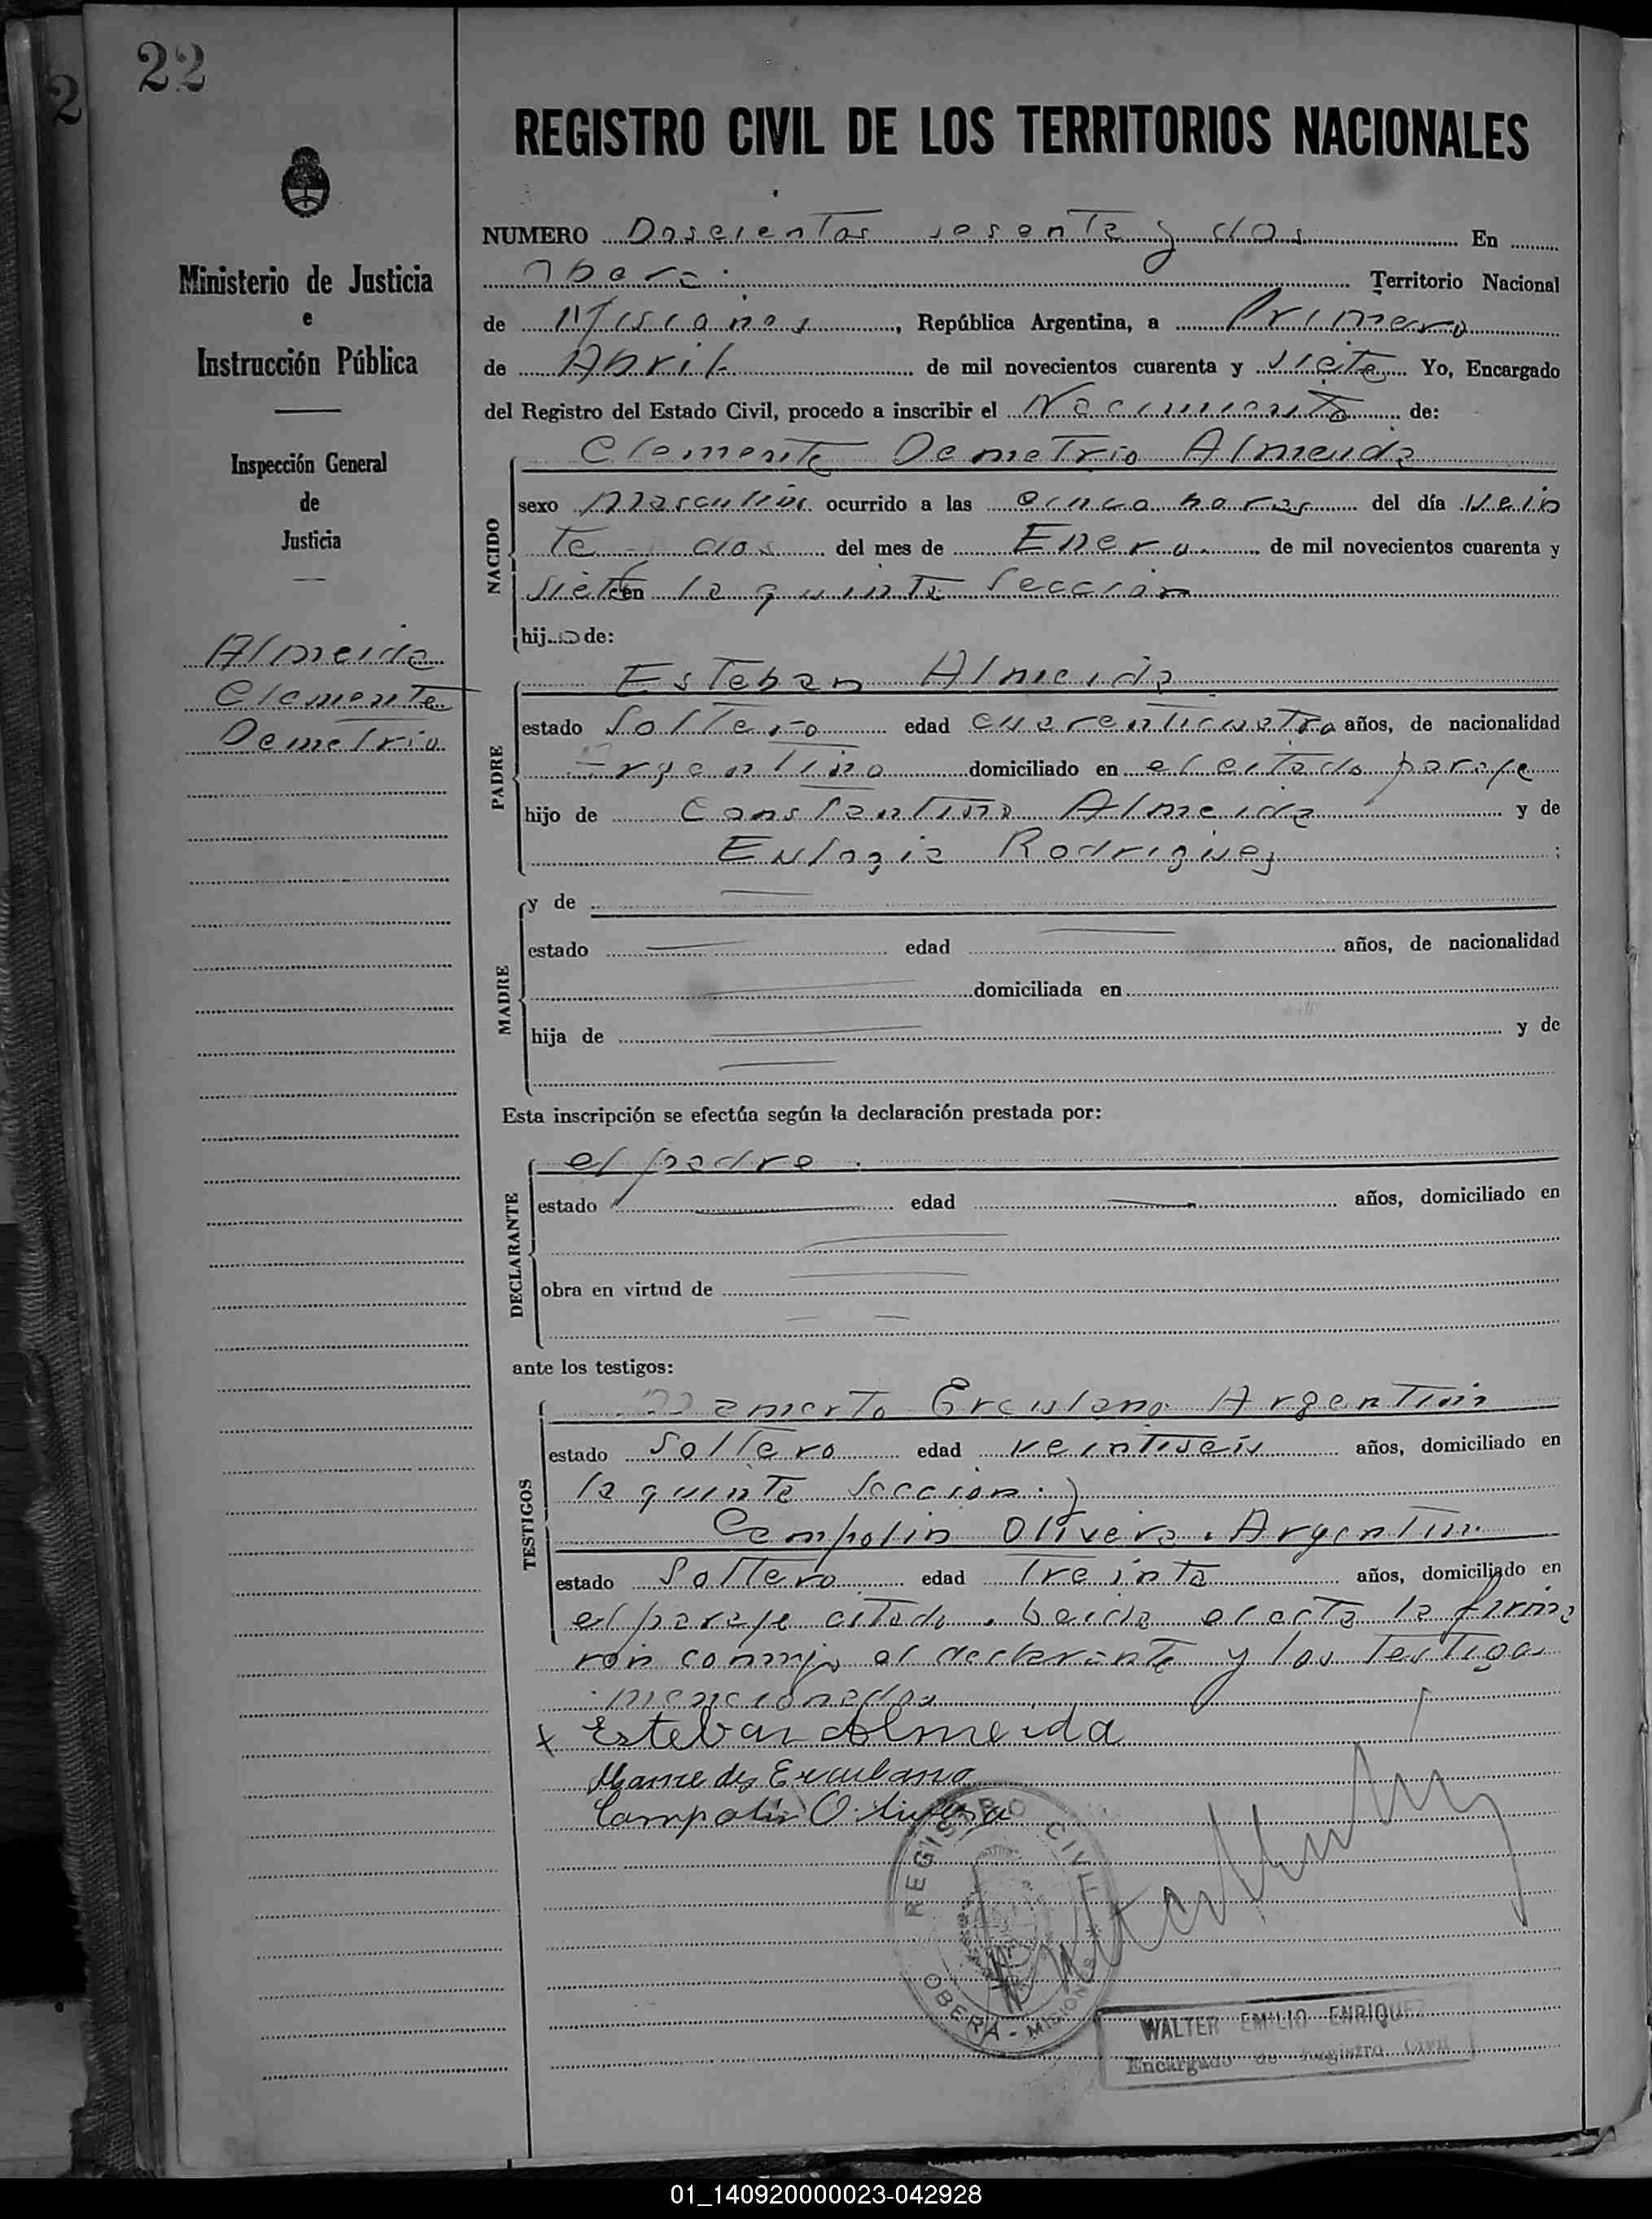 22
2
REGISTRO CIVIL DE LOS TERRITORIOS NACIONALES
Ministerio de Justicia
e
Instrucción Pública
Inspección General
de
Justicia
Almeida
Clemente
Demetrio
NUMERO Doscientos sesenta y dos En
Oberá Territorio Nacional
de Misiones, República Argentina, a Primero
de Abril de mil novecientos cuarenta y siete Yo, Encargado
del Registro del Estado Civil, procedo a inscribir el Nacimiento de:
NACIDO
Clemente Demetrio Almeida
sexo masculino ocurrido a las cinco horas del día Vein
te dos del mes de Enero de mil novecientos cuarenta y
siete en la quinta Sección
hijo de:
PADRE
Esteban Almeida
estado Soltero edad cuarenticuatro años, de nacionalidad
Argentino domiciliado en el citado paraje
hijo de Constantino Almeida y de
Eulogia Rodriguez ;
MADRE
y de
estado edad años, de nacionalidad
domiciliada en
hija de y de
Esta inscripción se efectúa según la declaración prestada por:
DECLARANTE
el padre.
estado edad años, domiciliado en
obra en virtud de
ante los testigos:
TESTIGOS
Erculano Argentin
estado Soltero edad veintiseis años, domiciliado en
la quinta Seccion.
Campolin Olivera. Argentin.
estado Soltero edad treinta años, domiciliado en
el paraje citado. Leida el acta la firma
ron conmigo el declarante y los testigos
mencionados
x Esteban Almeida
Erculano
Campolin Olivera
REGISTRO CIVIL
OBERA - MISIONES
WALTER EMILIO ENRIQUEZ
Encargado de Registro Civil
01_140920000023-042928